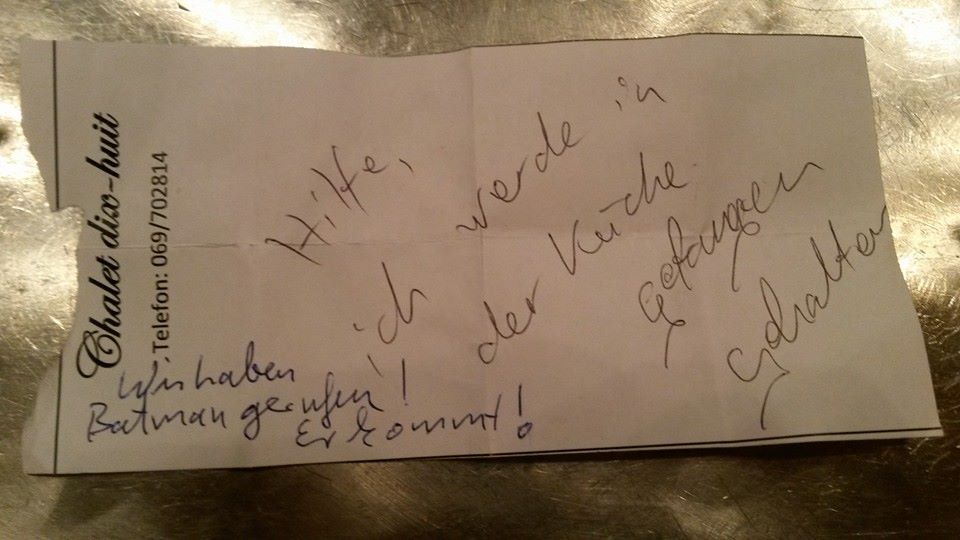 Chalet dix-huit
Telefon: 069/702814
Hilfe,
ich werde in
der Küche
gefangen
gehalten
Wir haben
Batman gerufen!
Er kommt!